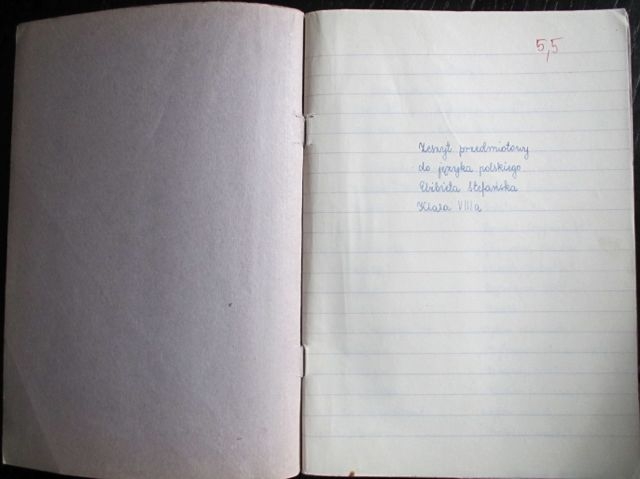 5,5
Zeszyt przedmiotowy
do języka polskiego
Elżbieta Stefańska
Klasa VIIIa